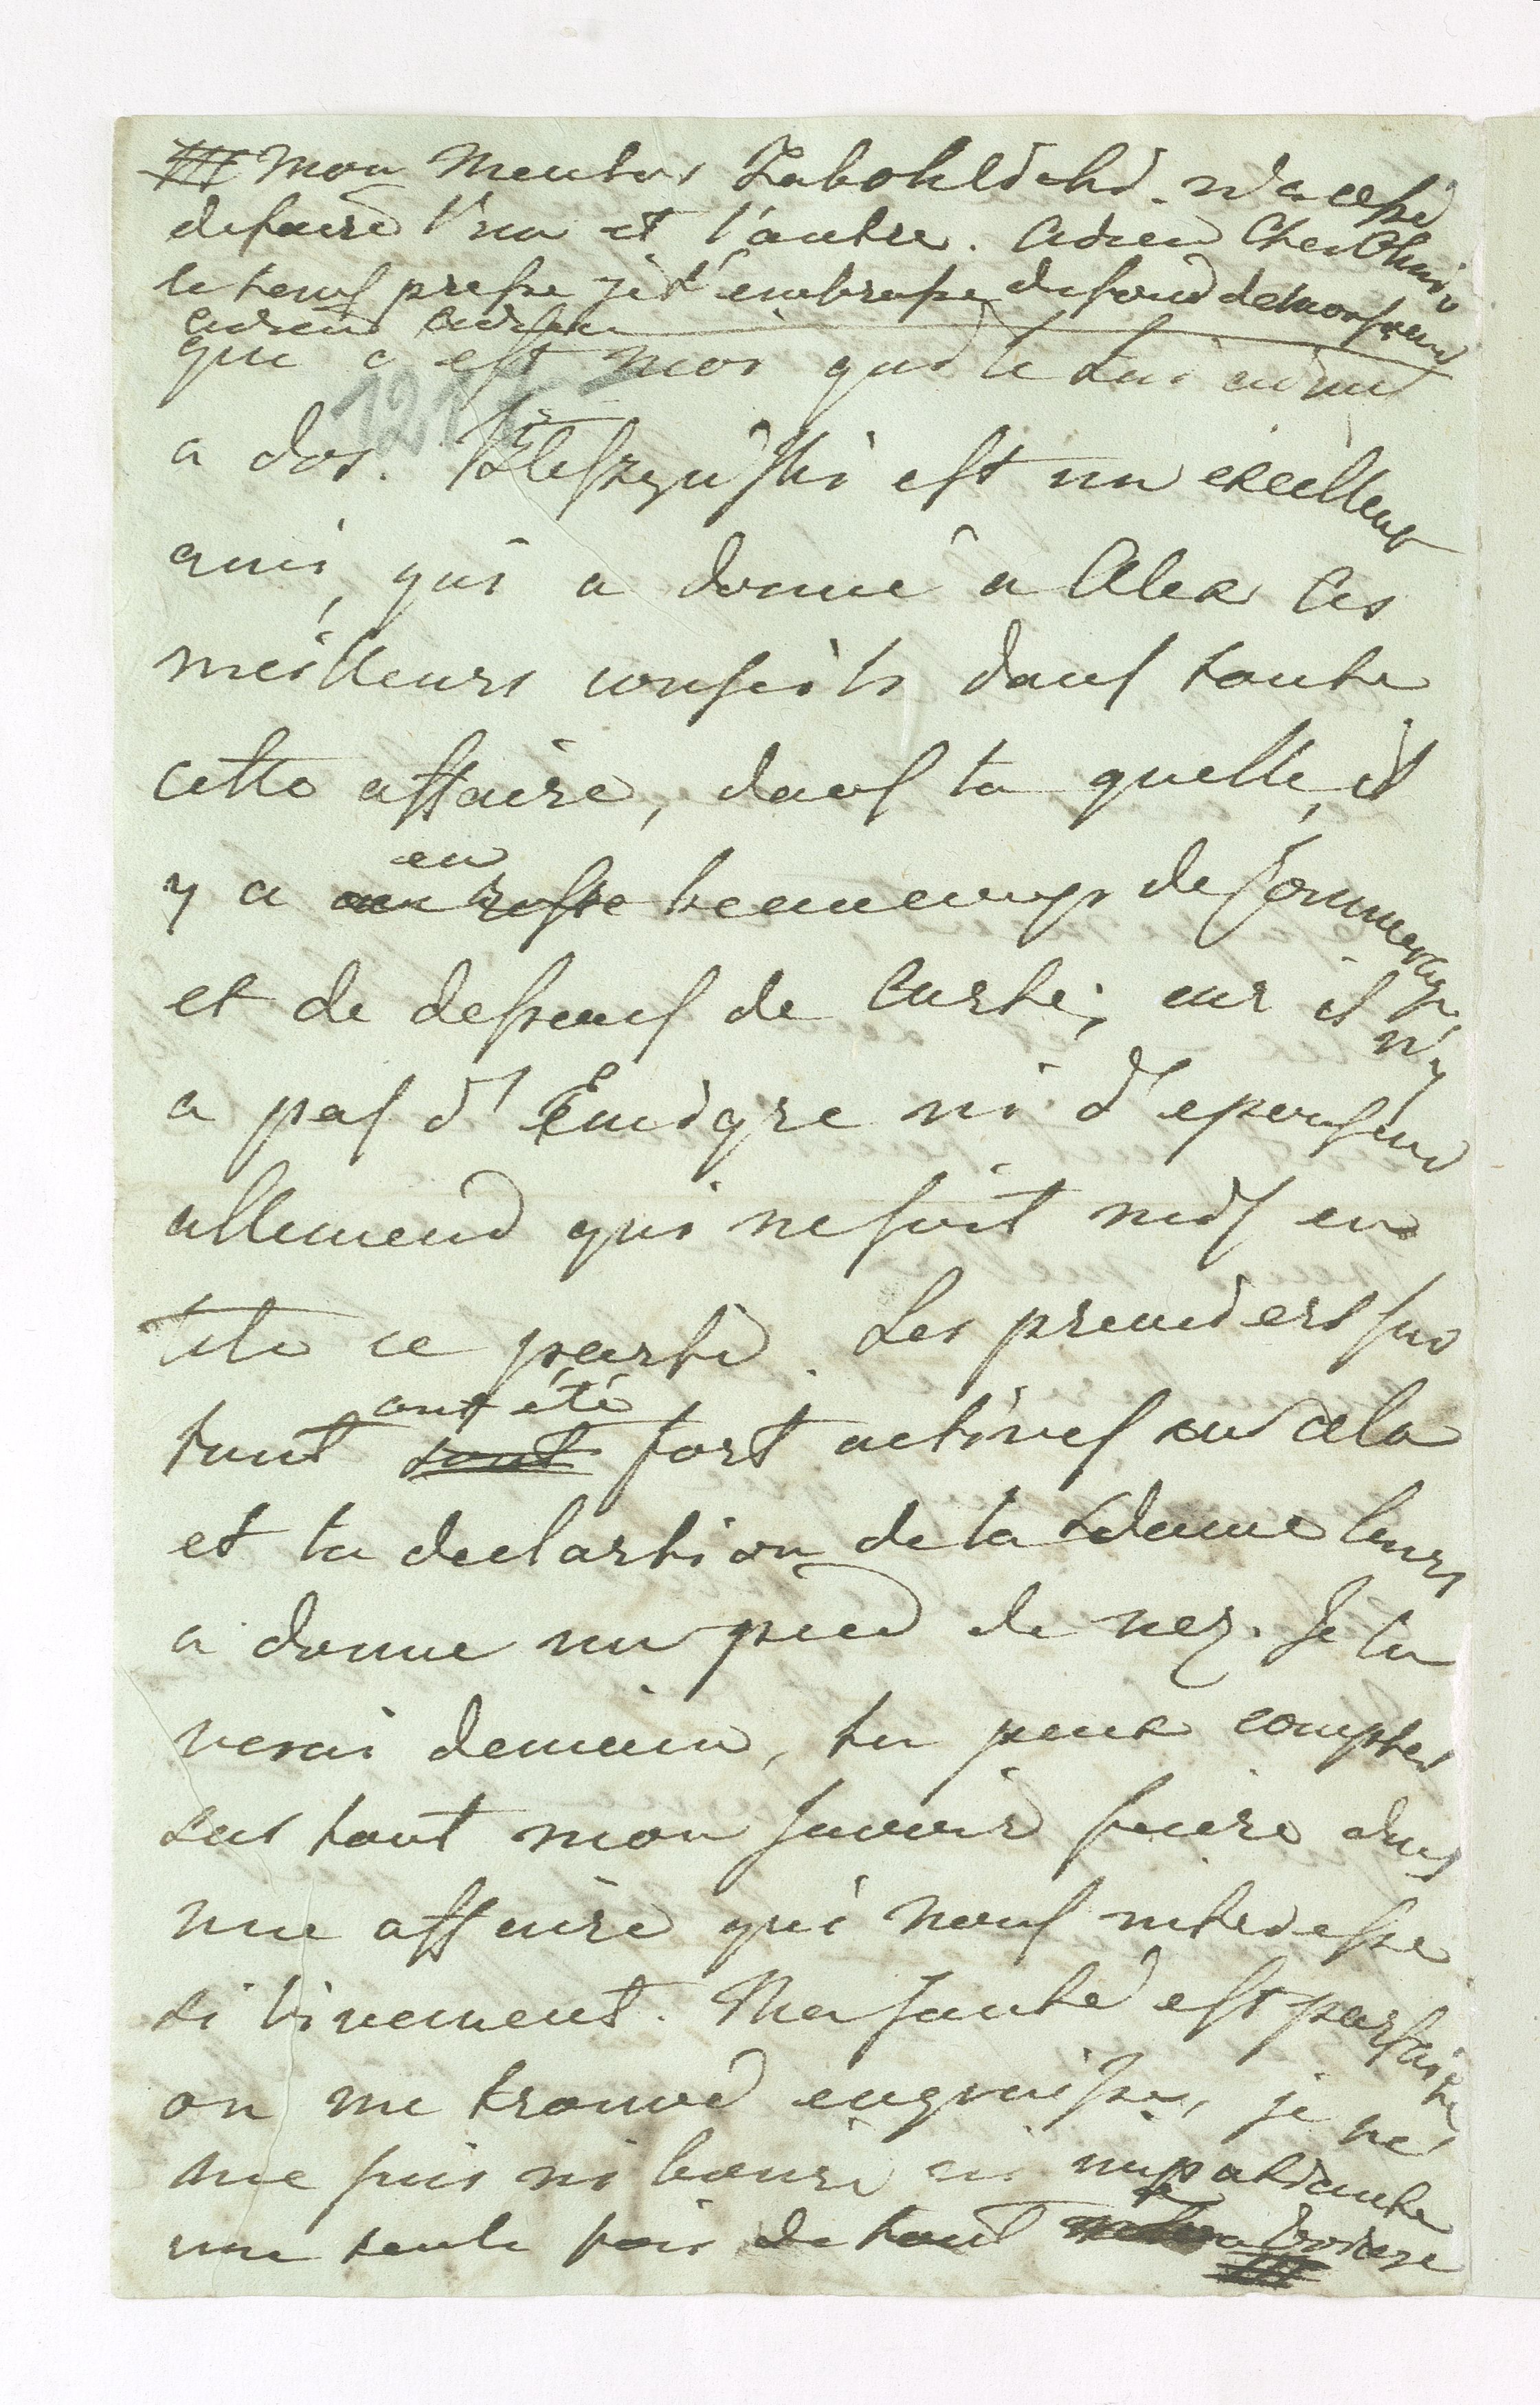 mon Mentor n'a cessé
de faire l'un et l'autre. Adieu Cher
le tems presse je t'embrasse du fond de mon
adieu adieu
que c est moi qui le lui
a dos. est un excellent
ami, qui a donné a Alex les
meilleurs conseils dans toute
cette affaire, dans la quelle, il
y a en beaucoup de
et de dessous de carte, car il n'y
a pas d'Emigre ni d'epouseur
allemend qui ne soit mis en
tete ce parti. Les premiers sur
tout ont été sont fort actives en cela
et la declartion de la Dame leurs
a donne un pied de nez. Je la
verai demain, tu peux compter
sur tout mon savoir faire dans
une affaire qui nous interesse
si vivement. Ma santé est parfaite
on me trouve engraisse, je ne
me suis ni ni impatiente
une seule fois de tout le
1217